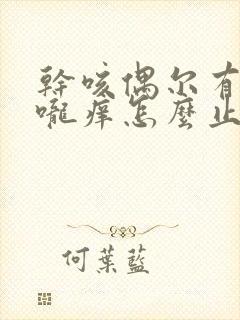 幹咳偶尔有
嚨癢怎麼止
何葉藍